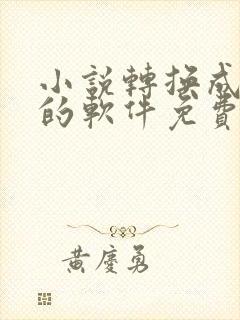 小説轉換成
的軟件免費
黃慶勇